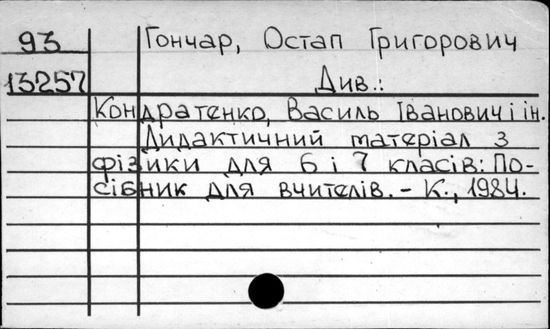 93 Гончар, Остап Григорович
13257 Див.:
Кондратенко, Василь Іванович і ін.
Дидактичний матеріал з
фізики для 6 і 7 класів: По-
сібник для вчителів. – К., 1984.